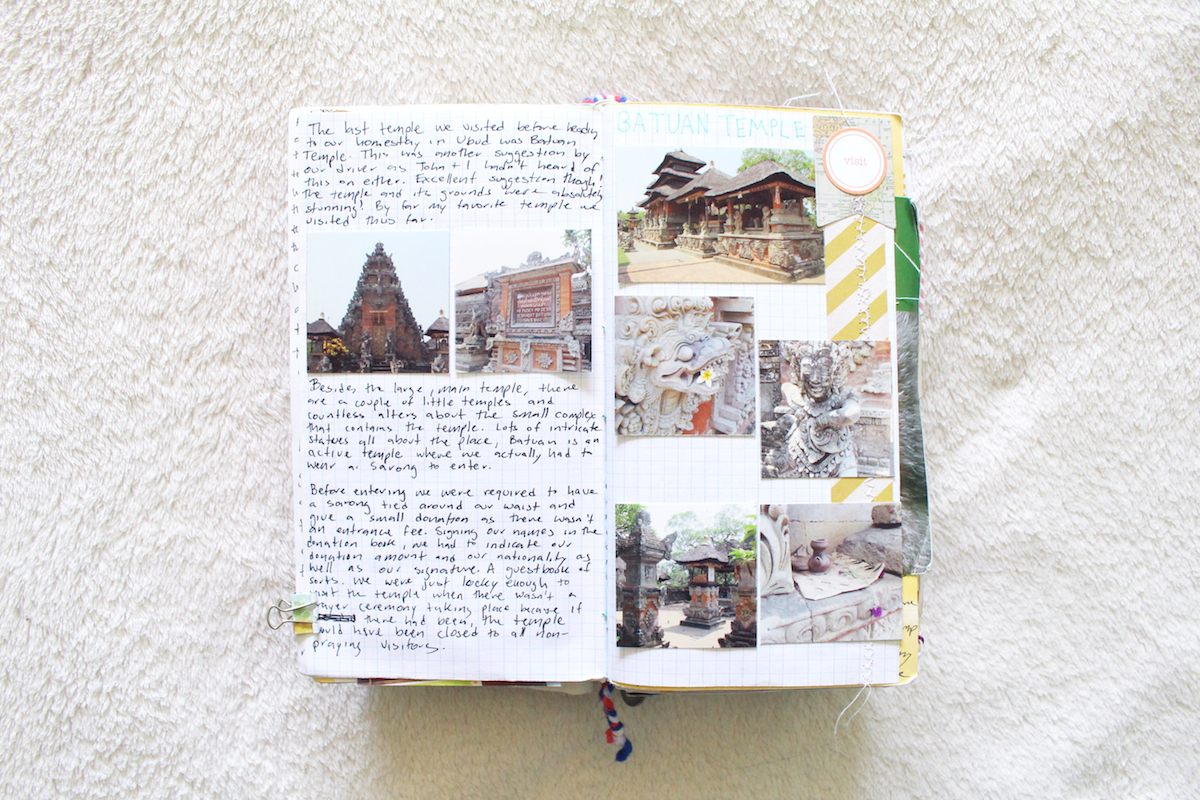 The last temple we visited before heading
to our homestay in Ubud was Batuan
Temple. This was another suggestion by
our driver as John + I hadn't heard of
this on either. Excellent suggestion though!
The temple and its grounds were absolutely
stunning! By far my favorite temple we
visited thus far.
Besides the large, main temple, there
are a couple of little temples and
countless alters about the small complex
that contains the temple. Lots of intricate
statues all about the place, Batuan is an
active temple where we actually had to
wear a sarong to enter.
Before entering we were required to have
a sarong tied around our waist and
give a small donation as there wasn't
an entrance fee. Signing our names in the
donation book, we had to indicate our
donation amount and our nationality as
well as our signature. A guestbook of
sorts. We were just lucky enough to
visit the temple when there wasn't a
prayer ceremony taking place because if
there had been, the temple
would have been closed to all non-
praying visitors.
BATUAN TEMPLE
visit